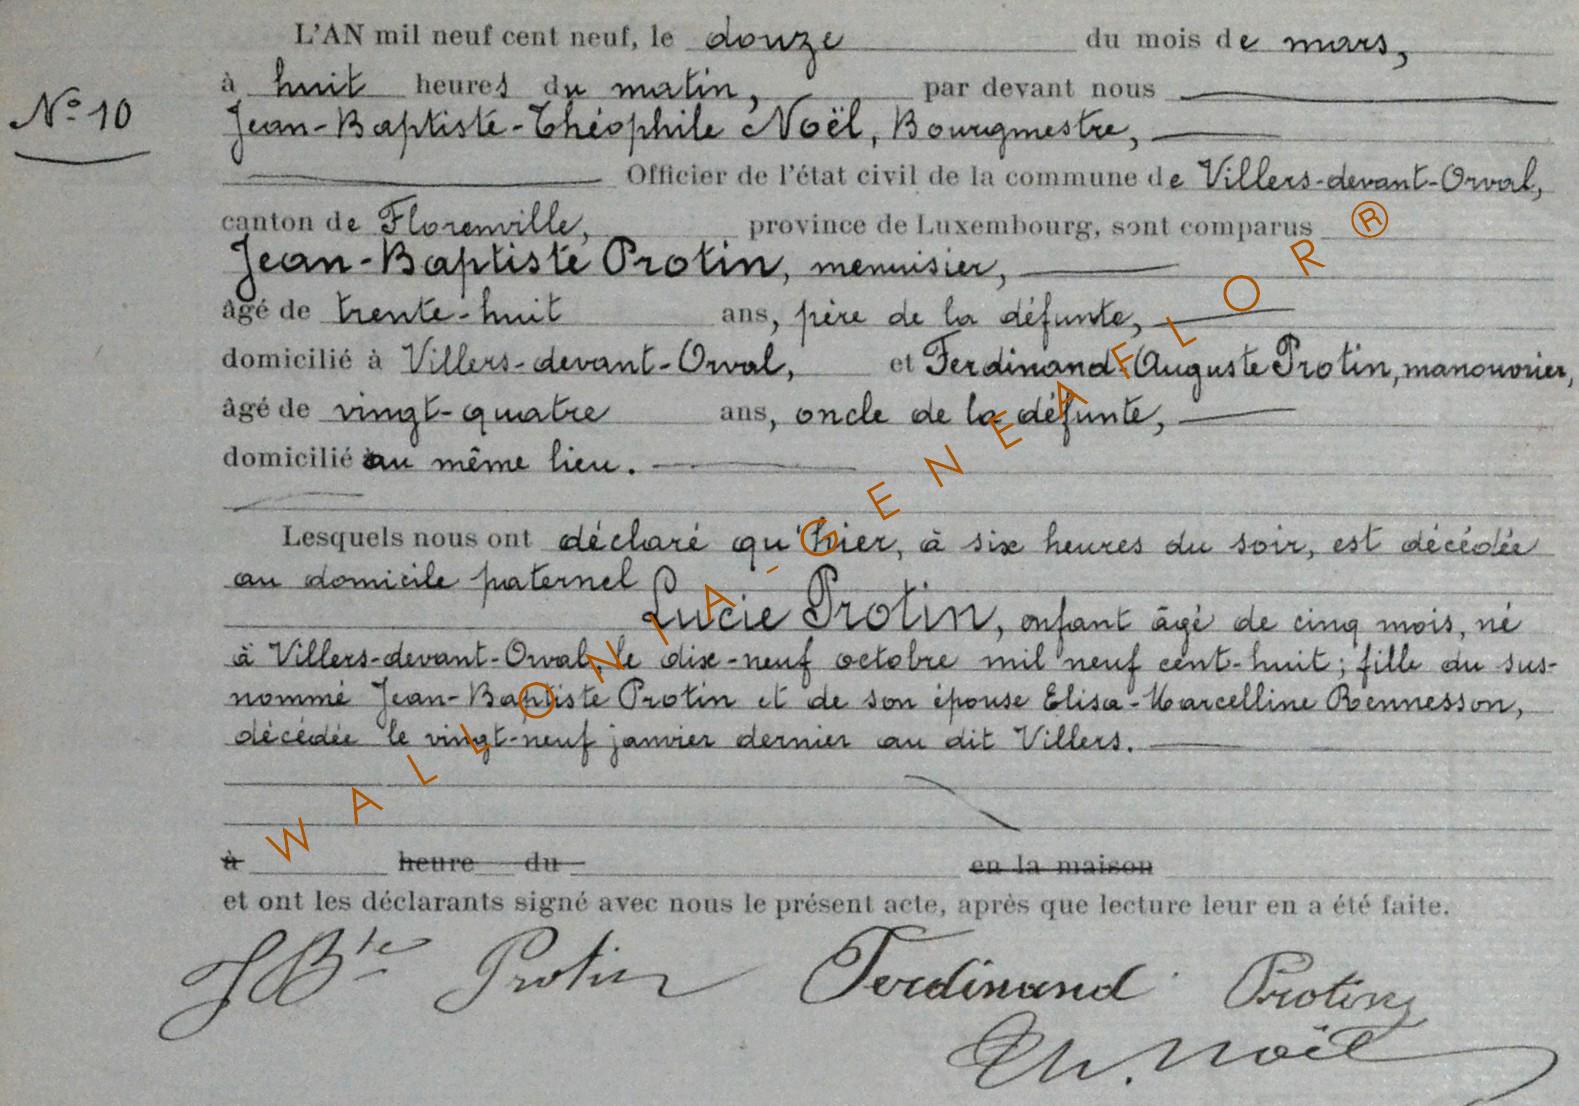 L'AN mil neuf cent neuf, le douze du mois de mars,
à huit heures du matin, par devant nous
N° 10
Jean-Baptiste-Théophile Noël, Bourgmestre,
Officier de l'état civil de la commune de Villers-devant-Orval,
canton de Florenville, province de Luxembourg, sont comparus
Jean-Baptiste Protin, menuisier,
âgé de trente-huit ans, père de la défunte,
domicilié à Villers-devant-Orval, et Ferdinand-Auguste Protin, manouvrier,
âgé de vingt-quatre ans, oncle de la défunte,
domicilié au même lieu.
Lesquels nous ont déclaré qu'hier, à six heures du soir, est décédée
au domicile paternel
Lucie Protin, enfant âgé de cinq mois, né
à Villers-devant-Orval, le dix-neuf octobre mil neuf cent-huit; fille du sus-
nommé Jean-Baptiste Protin et de son épouse Elisa-Marcelline Rennesson,
décédée le vingt-neuf janvier dernier au dit Villers.
à heure du en la maison
et ont les déclarants signé avec nous le présent acte, après que lecture leur en a été faite.
JBte Protin Ferdinand Protin
Th. Noël
WALLONIA-GENEAFLOR®